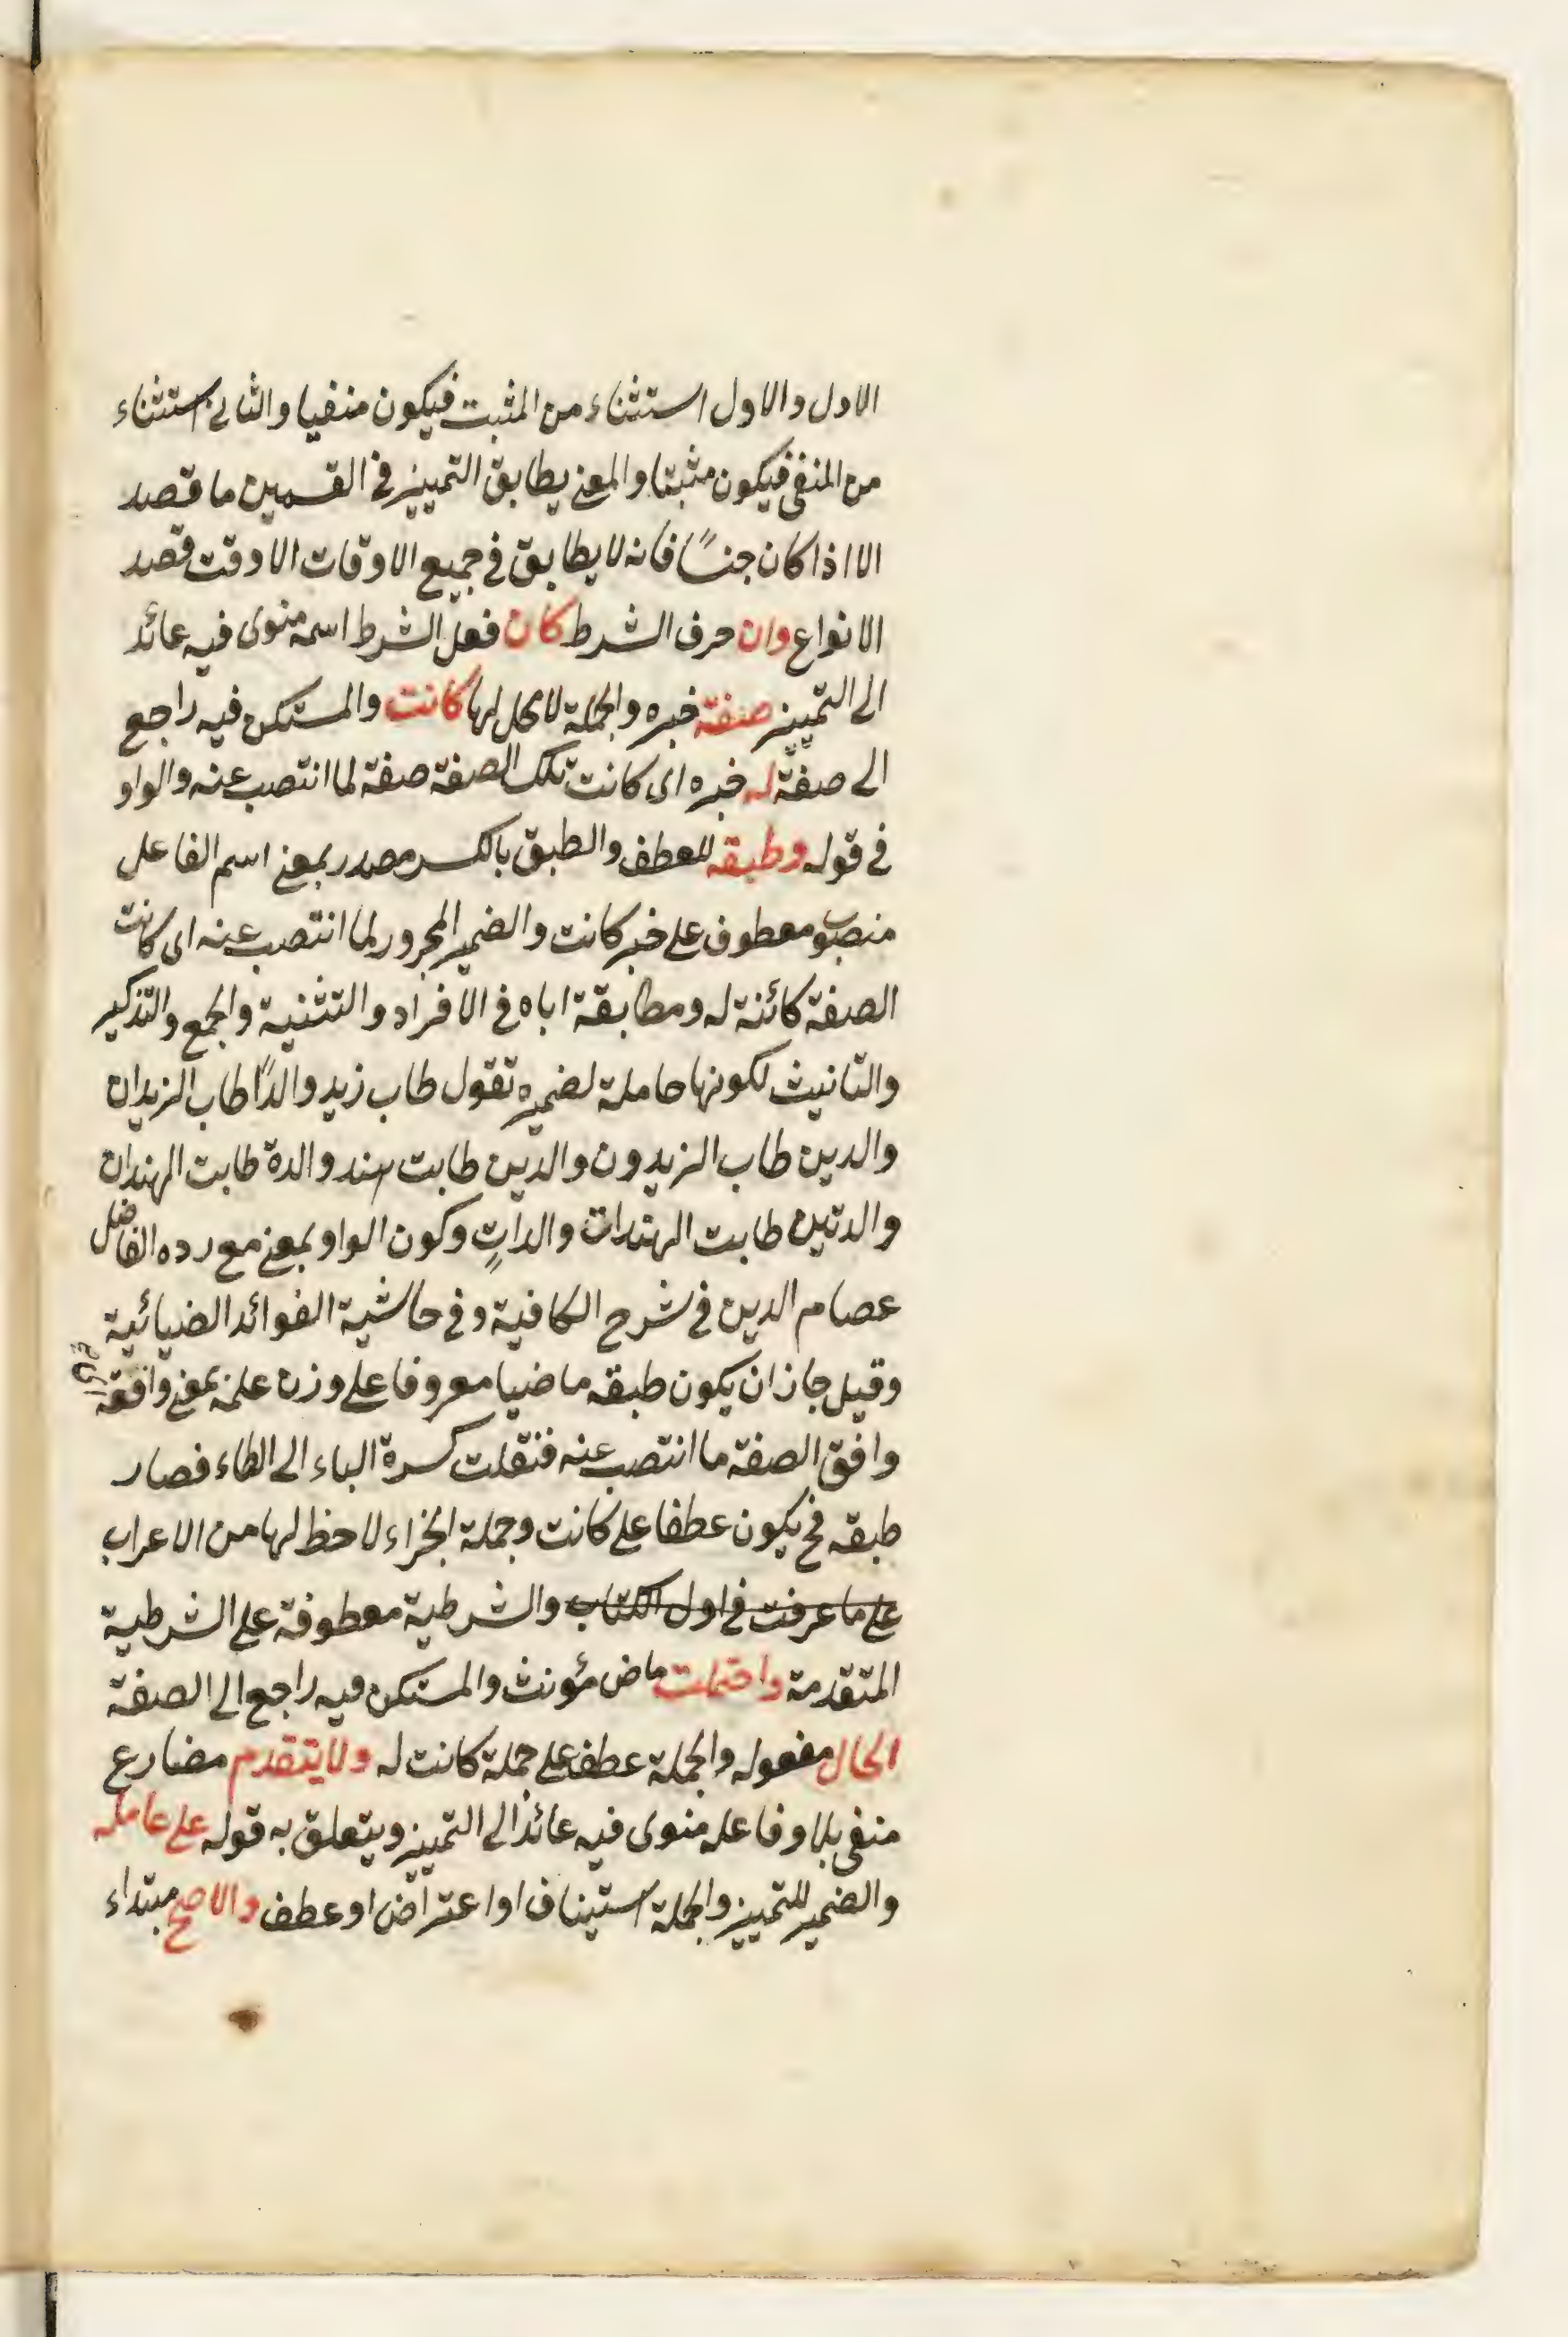 الاول والاول استثناء من المثبت فيكون منفيا والثانى استثناء
من المنفى فيكون مثبتا والمعنى يطابق التمييز فى القسمين ما قصد
الا اذا كان جنسًا فانه لا يطابق فى جميع الاوقات الا وقت قصد
الانواع وان حرف الشرط كان فعل الشرط اسمه منوى فيه عائد
الى التمييز صفة خبره والجملة لا محل لها كانت والمستكن فيه راجع
الى صفة له خبره اى كانت تلك الصفة صفة لما انتصب عنه والواو
فى قوله وطبقه للعطف والطبق بالكسر مصدر بمعنى اسم الفاعل
منصوب معطوف على خبر كانت والضمير المجرور لما انتصب عنه اى كانت
الصفة كائنة له ومطابقة اياه فى الافراد والتثنية والجمع والتذكير
والتانيث لكونها حاملة لضميره تقول طاب زيد والدًا طاب الزيدان
والدين طاب الزيدون والدين طابت هند والدة طابت الهندان
والدتين طابت الهندات والداتٍ وكون الواو بمعنى مع رده الفاضل
عصام الدين فى شرح الكافية وفى حاشية الفوائد الضيائية
وقيل جاز ان يكون طبقه ماضيا معروفا على وزن علمه بمعنى وافقه
وافق الصفة ما انتصب عنه فنقلت كسرة الباء الى الطاء فصار
طبقه فح يكون عطفا على كانت وجملة الجزاء لا حظ لها من الاعراب
على ما عرفت فى اول الكتاب والشرطية معطوفة على الشرطية
المتقدمة واحتملت ماض مؤنث والمستكن فيه راجع الى الصفة
الحال مفعوله والجملة عطف على جملة كانت له ولا يتقدم مضارع
منفى بلا وفاعله منوى فيه عائد الى التمييز ويتعلق به قوله على عامله
والضمير للتمييز والجملة استيناف او اعتراض او عطف والاصح مبتداء